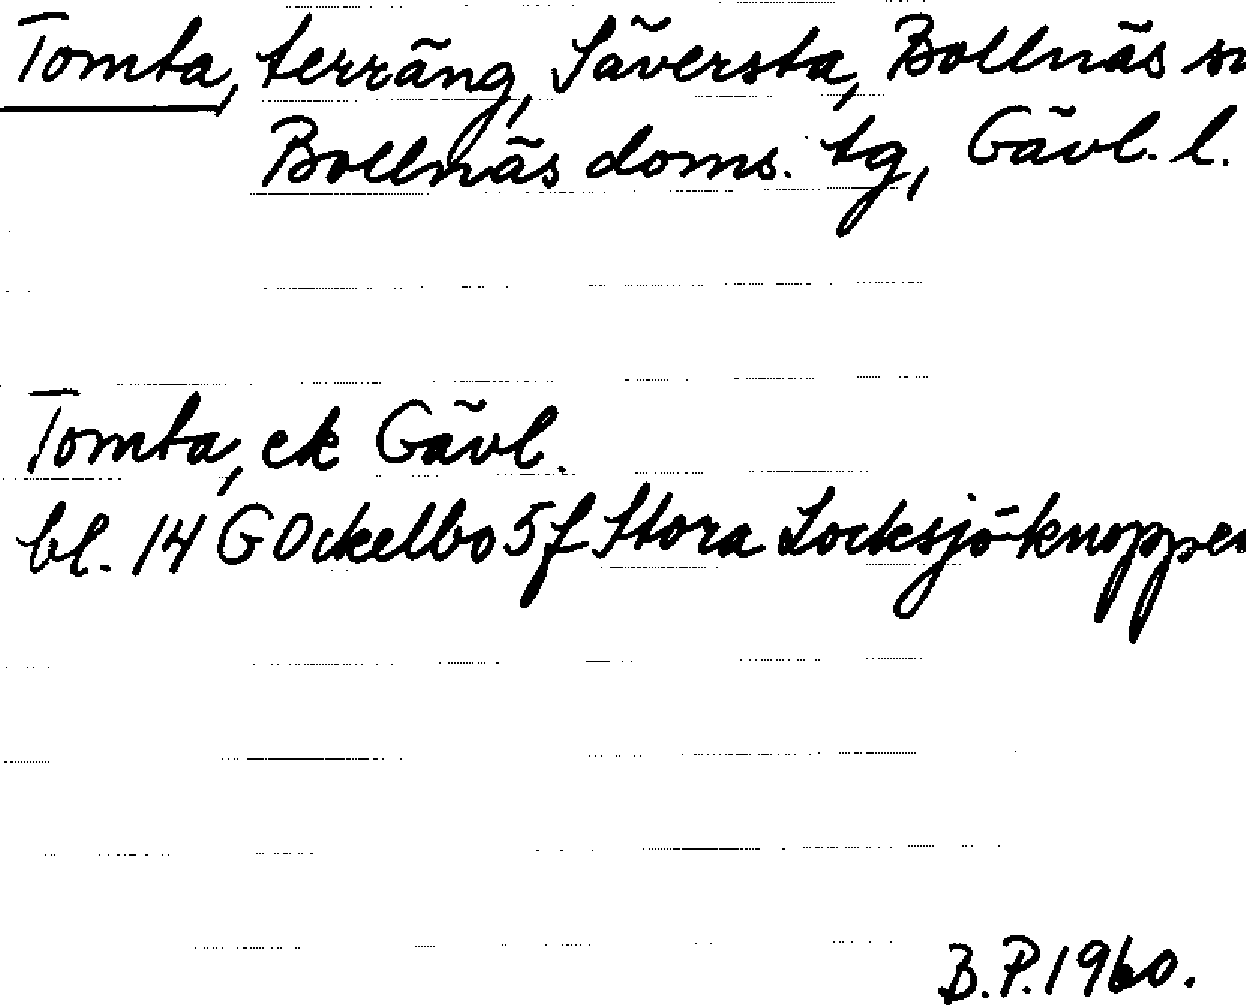 Tomta, terräng, Säversta, Bollnäs sn
Bollnäs doms. tg, Gävl. l.
Tomta, ek Gävl.
bl. 14 G Ockelbo 5f Stora Locksjöknoppen
B.P. 1960.